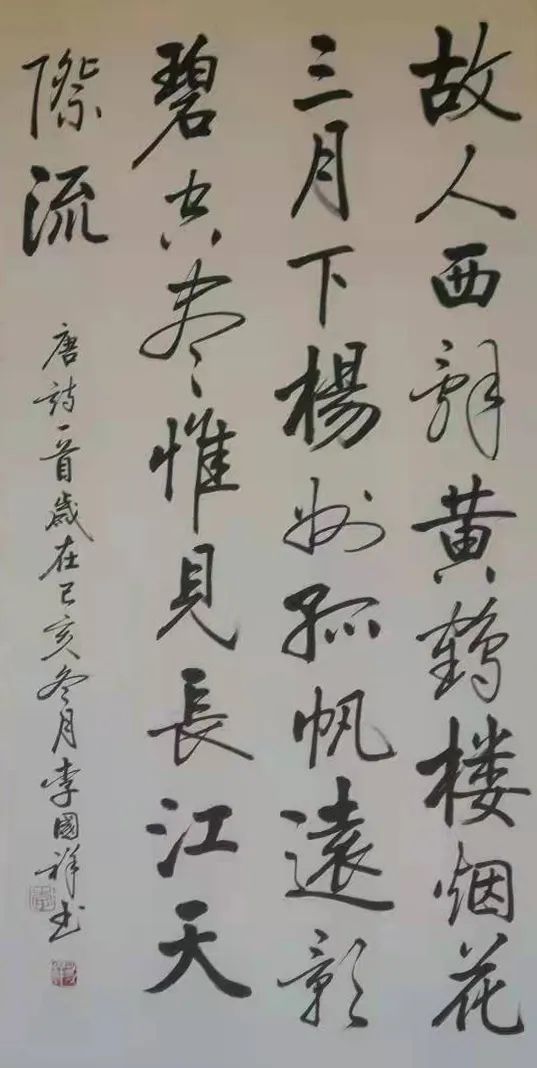 故人西辞黄鹤楼烟花
三月下楊州孤帆遠影
碧空尽惟見長江天
際流
唐詩一首歲在己亥冬月李國祥书